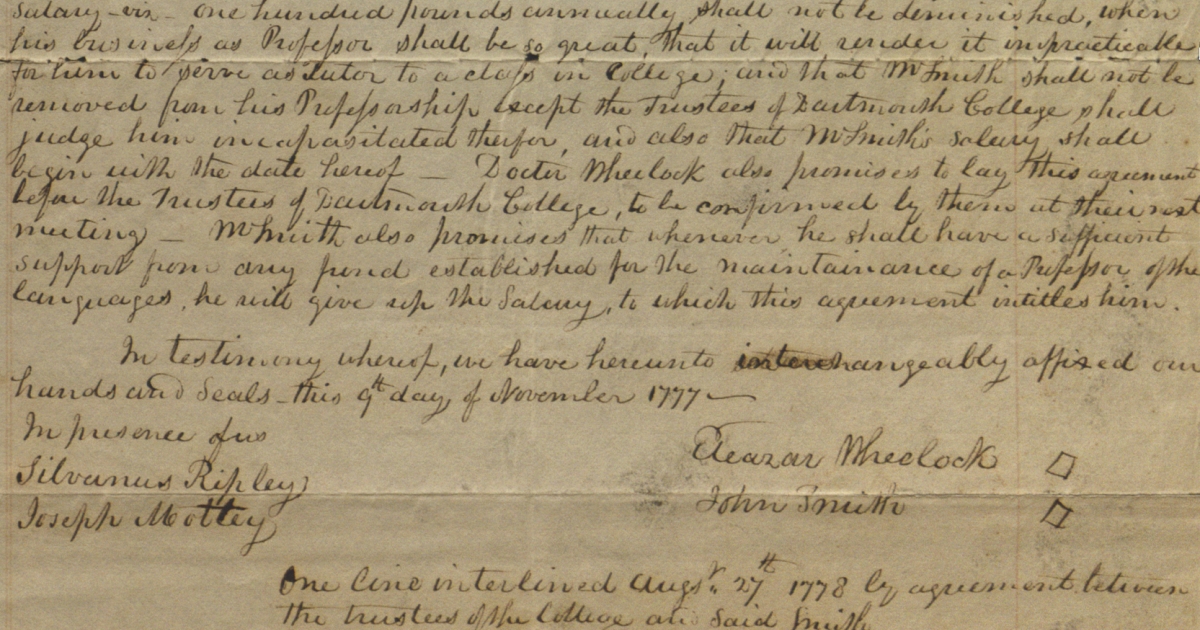 Salary - viz - one hundred pounds annually, shall not be deminished, when
his business as Professor shall be so great, that it will render it impracticable
for him to serve as tutor to a class in College; and that Mr Smith shall not be
removed from his Professorship except the Trustees of Dartmouth College shall
judge him incapasitated therfor, and also that Mr Smith's Salary shall
begin with the date hereof — Doctor Wheelock also promises to lay this agreement
before the Trustees of Dartmouth College, to be confirmed by them at their next
meeting — Mr Smith also promises that whenever he shall have a suffecient
support from any fund established for the maintainance of a Professor of the
languages, he will give up the Salary, to which this agreement intitles him.
In testimony whereof, we have hereunto interchangeably affixed our
hands and Seals - this 9th day, of November 1777 —
In presence of us
Eleazar Wheelock
Silvanus Ripley
John Smith
Joseph Mottey
One line interlined Augst. 27th 1778 by agreement between
the trustees of the College and Said Smith